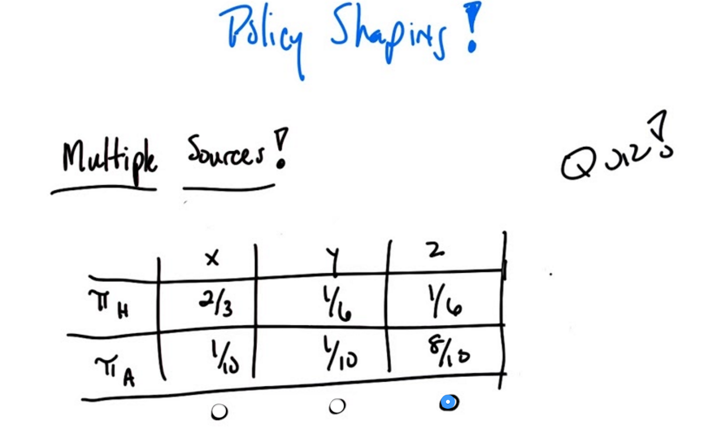 Policy Shaping!
Multiple Sources!
Quiz!
x y z
π H 2/3 1/6 1/6
π A 1/10 1/10 8/10